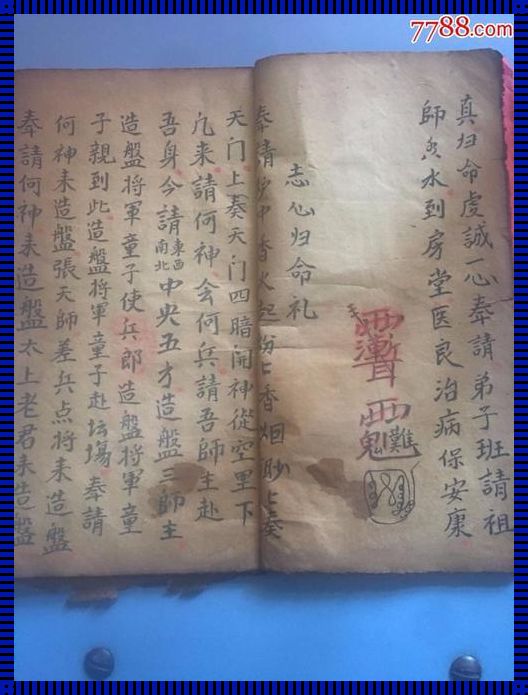 7788.com
真归命虔誠一心奉請弟子班請祖
師香水到房堂医良治病保安康
志心归命礼
奉請炉中香火起纷上香烟眇上奏
天门上奏天门四暗開神從空里下
凢来請何神会何兵請吾師主赴
吾身今請東西南北中央五方造盤三師主
造盤將軍童子使兵郎造盤將軍童
子親到此造盤將軍童子赴坛場奉請
何神来造盤張天師差兵点將来造盤
奉請何神来造盤太上老君来造盤